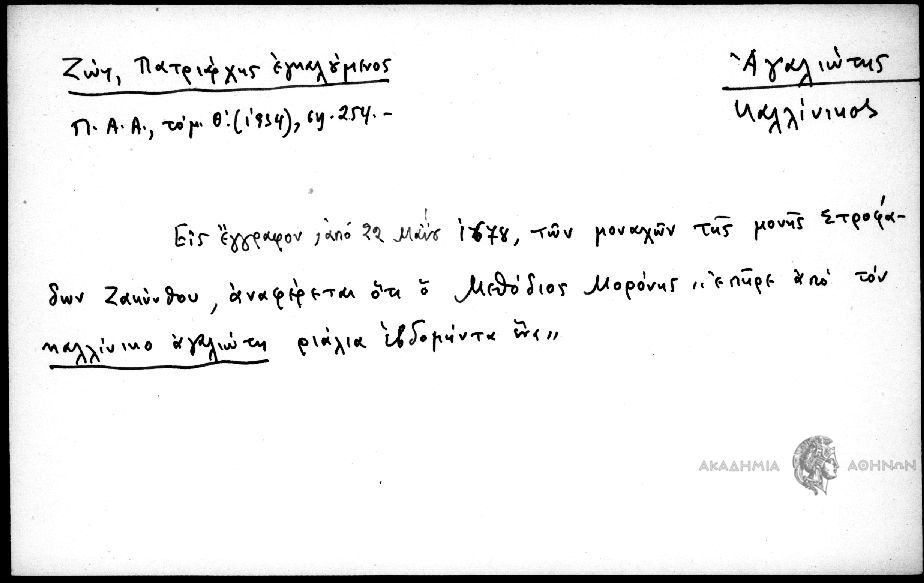 Ζώη, Πατριάρχης ἐγκαλούμενος
Π.Α.Α., τόμ. Θ΄.(1934), σ. 254.-
Ἀγαλιώτης
Καλλίνικος
Εἰς ἔγγραφον, ἀπό 22 Μαΐου 1678, τῶν μοναχῶν τῆς μονῆς Στροφά-
δων Ζακύνθου, ἀναφέρεται ὅτι ὁ Μεθόδιος Μορόνης „ἐπῆρε ἀπό τόν
καλλίνικο ἀγαλιώτη ριάλια ἑβδομήντα ἕνα„
ΑΚΑΔΗΜΙΑ ΑΘΗΝΩΝ